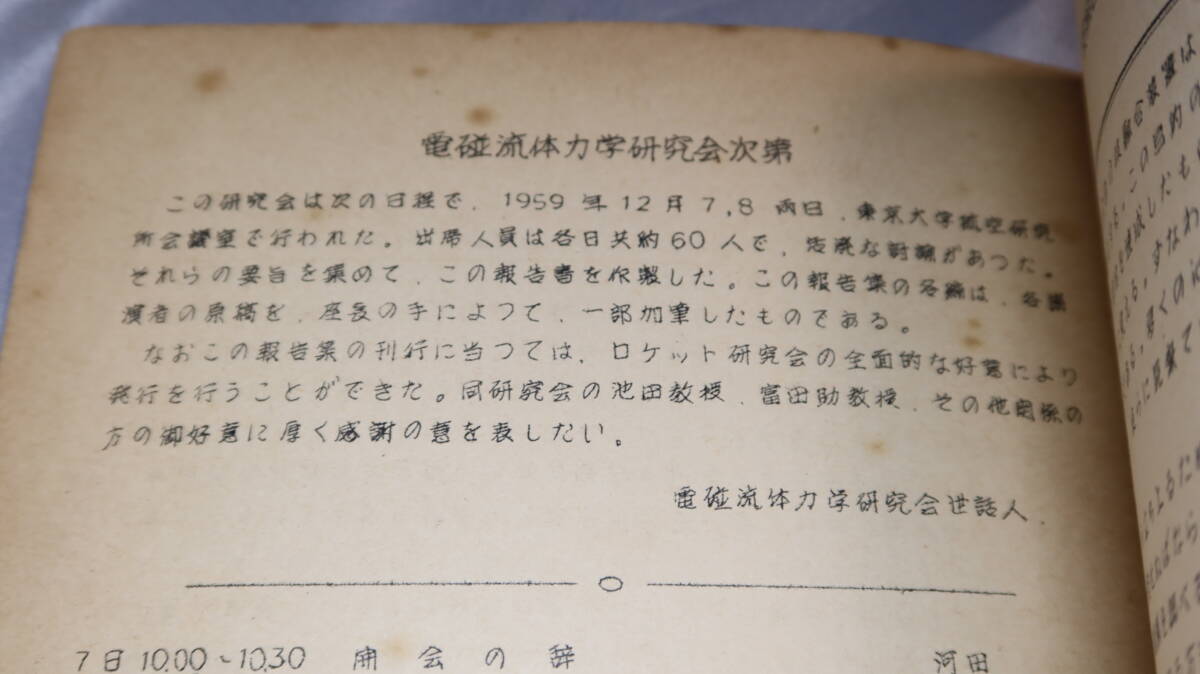 電磁流体力学研究会次第
この研究会は次の日程で、1959年12月7,8両日、東京大学航空研究
所会議室で行われた。出席人員は各日共約60人で、活溌な討論があつた。
それらの要旨を集めて、この報告書を作製した。この報告集の各編は、各講
演者の原稿を、座長の手によつて、一部加筆したものである。
なおこの報告集の刊行に当つては、ロケット研究会の全面的な好意により
発行を行うことができた。同研究会の池田教授、富田助教授、その他関係の
方の御好意に厚く感謝の意を表したい。
電磁流体力学研究会世話人、
7日 10.00~10.30 開会の辞 河田